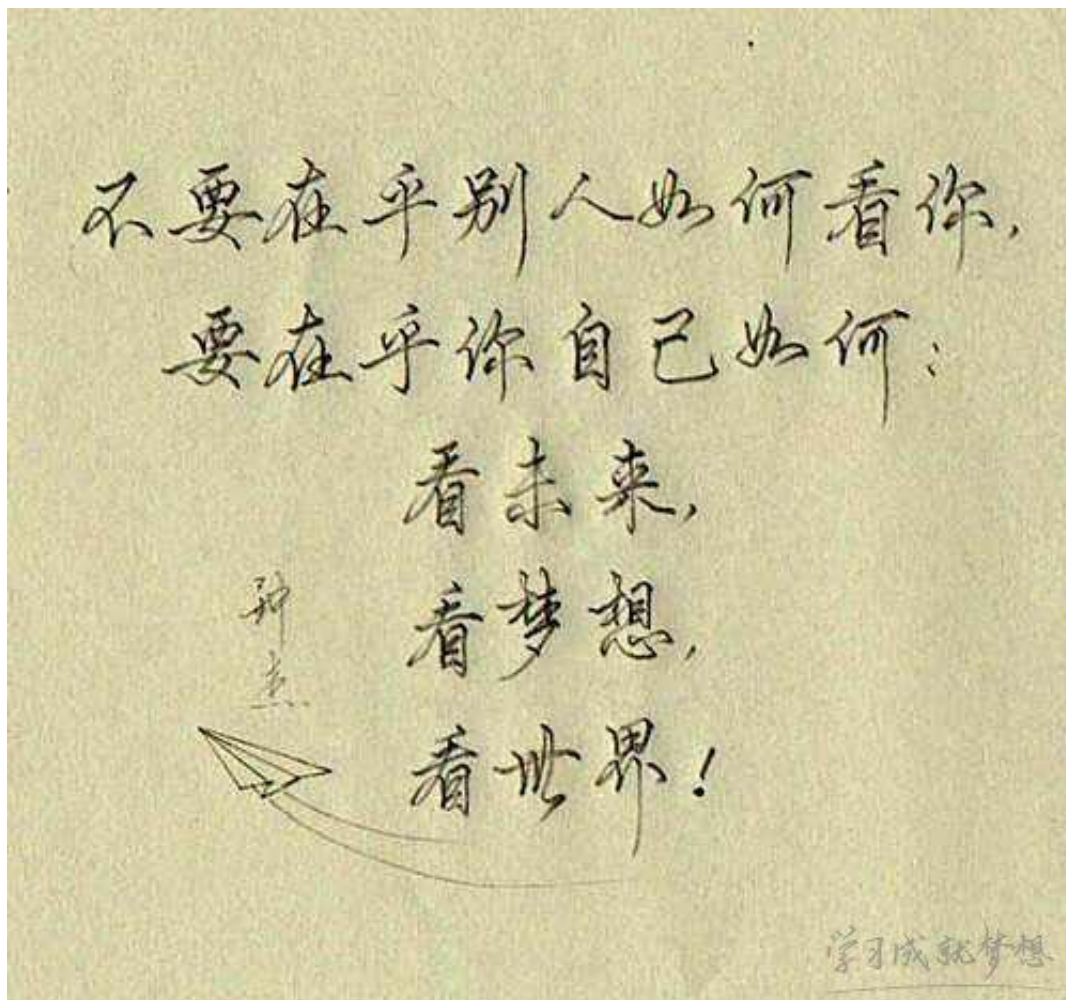 不要在乎别人如何看你,
要在乎你自己如何:
看未来,
看梦想,
看世界!
钟
杰
学习成就梦想